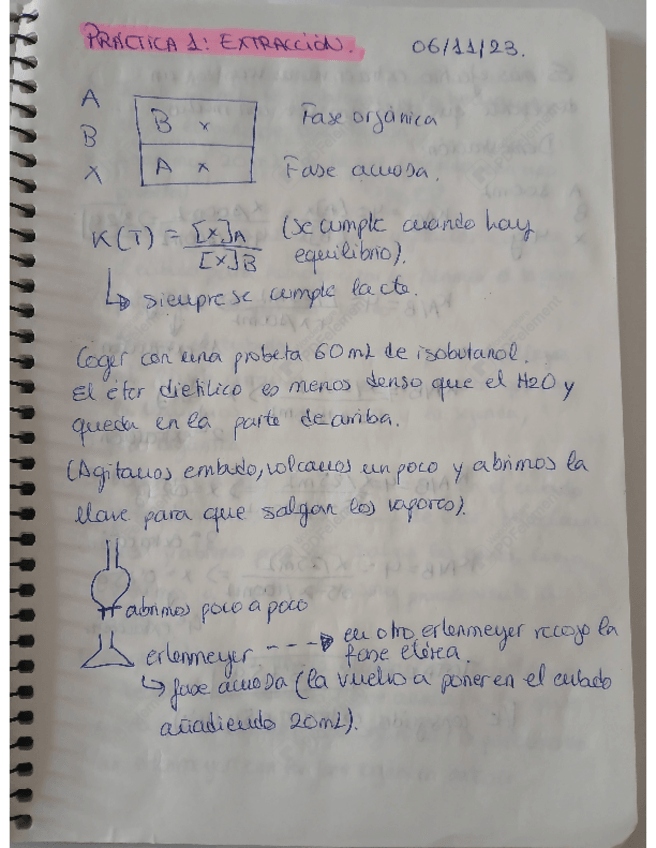 PRÁCTICA 1: EXTRACCIÓN. 06/11/23.
A
B
X
B x Fase orgánica
A x Fase acuosa.
K(T) = [x]A / [x]B (se cumple cuando hay equilibrio).
↳ siempre se cumple la cte.
Coger con una probeta 60 mL de isobutanol.
El éter dietílico es menos denso que el H2O y
queda en la parte de arriba.
(Agitamos embudo, volcamos un poco y abrimos la
llave para que salgan los vapores).
abrimos poco a poco
erlenmeyer ---> en otro erlenmeyer recojo la
fase etérea.
↳ fase acuosa (la vuelvo a poner en el embudo
añadiendo 20mL).